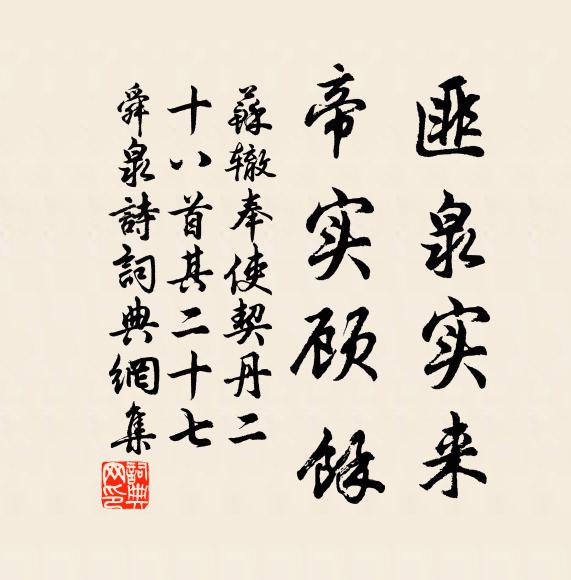 匪泉实来
帝实顾馀
蘇辙奉使契丹二
十八首其二十七
舜泉詩詞典網集
詞典网印